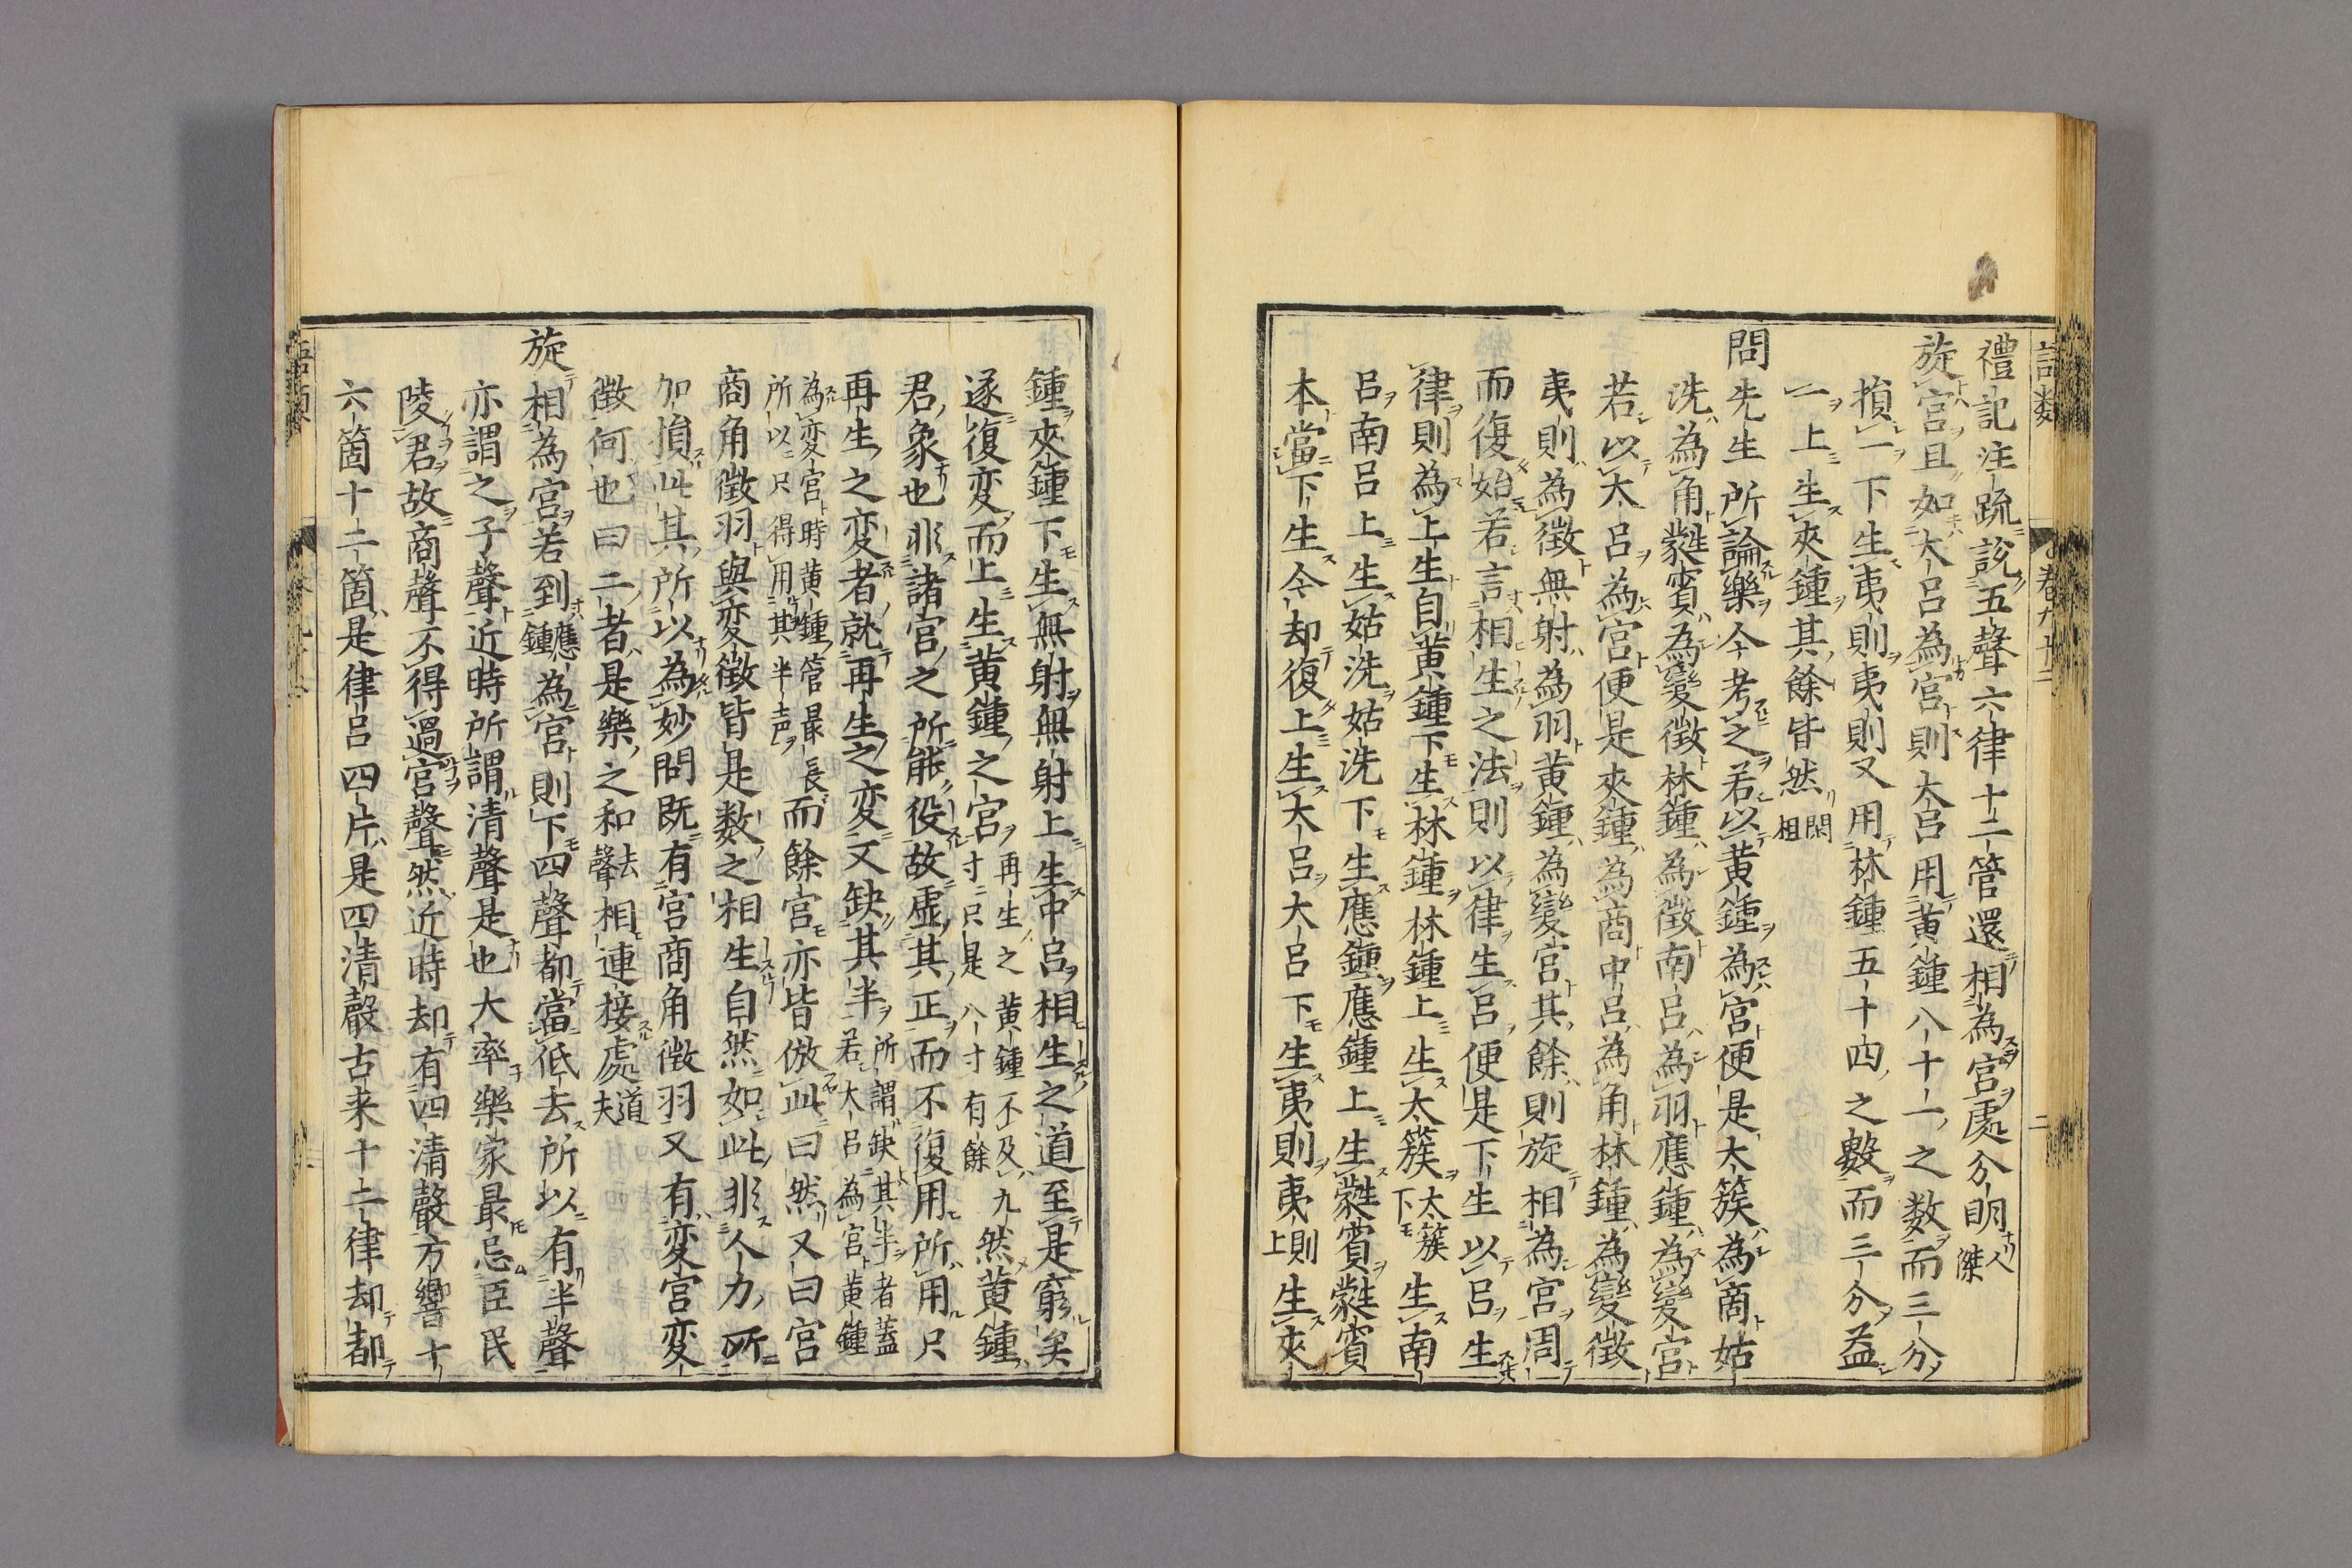 禮記注疏說五聲六律十二管還相為宮處分明人傑
旋宮且如大呂為宮則大呂用黃鍾八十一之数而三分
損一下生夷則夷則又用林鍾五十四之數而三分益
一上生夾鍾其餘皆然閎祖
問先生所論樂今考之若以黃鍾為宮便是太簇為商姑
洗為角蕤賓為變徵林鍾為徵南呂為羽應鍾為變宮
若以大呂為宮便是夾鍾為商中呂為角林鍾為變徵
夷則為徵無射為羽黃鍾為變宮其餘則旋相為宮周
而復始若言相生之法則以律生呂便是下生以呂生
律則為上生自黃鍾下生林鍾林鍾上生太簇太簇下生南
呂南呂上生姑洗姑洗下生應鍾應鍾上生蕤賓蕤賓
本當下生今却復上生大呂大呂下生夷則夷則上生夾
鍾夾鍾下生無射無射上生中呂相生之道至是窮矣
遂復変而上生黃鍾之宮再生之黃鍾不及九寸只是八寸有餘然黃鍾
君象也非諸宮之所能役故虛其正而不復用所用只
再生之変者就再生之変又缺其半所謂缺其半者蓋若大呂為宮黃鍾
為変宮時黃鍾管最長所以只得用其半声而餘宮亦皆倣此曰然又曰宮
商角徵羽與変徵皆是数之相生自然如此非人力所
加損此其所以為妙問既有宮商角徵羽又有変宮変
徵何也曰二者是樂之和去聲相連接處道夫
旋相為宮若到應鍾為宮則下四聲都當低去所以有半聲
亦謂之子聲近時所謂清聲是也大率樂家最忌臣民
陵君故商聲不得過宮聲然近時却有四清聲方響十
六箇十二箇是律呂四片是四清聲古来十二律却都